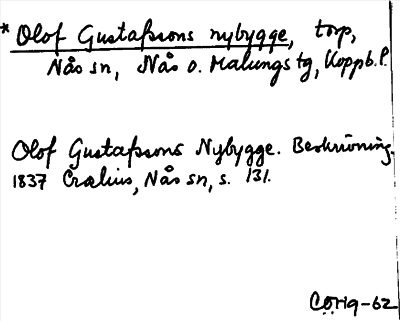 * Olof Gustafssons nybygge, torp,
Nås sn, Nås o. Malungs tg, Koppb. l.
Olof Gustafssons Nybygge. Beskrivning.
1837 Crælius, Nås sn, s. 131.
CÖHq-62